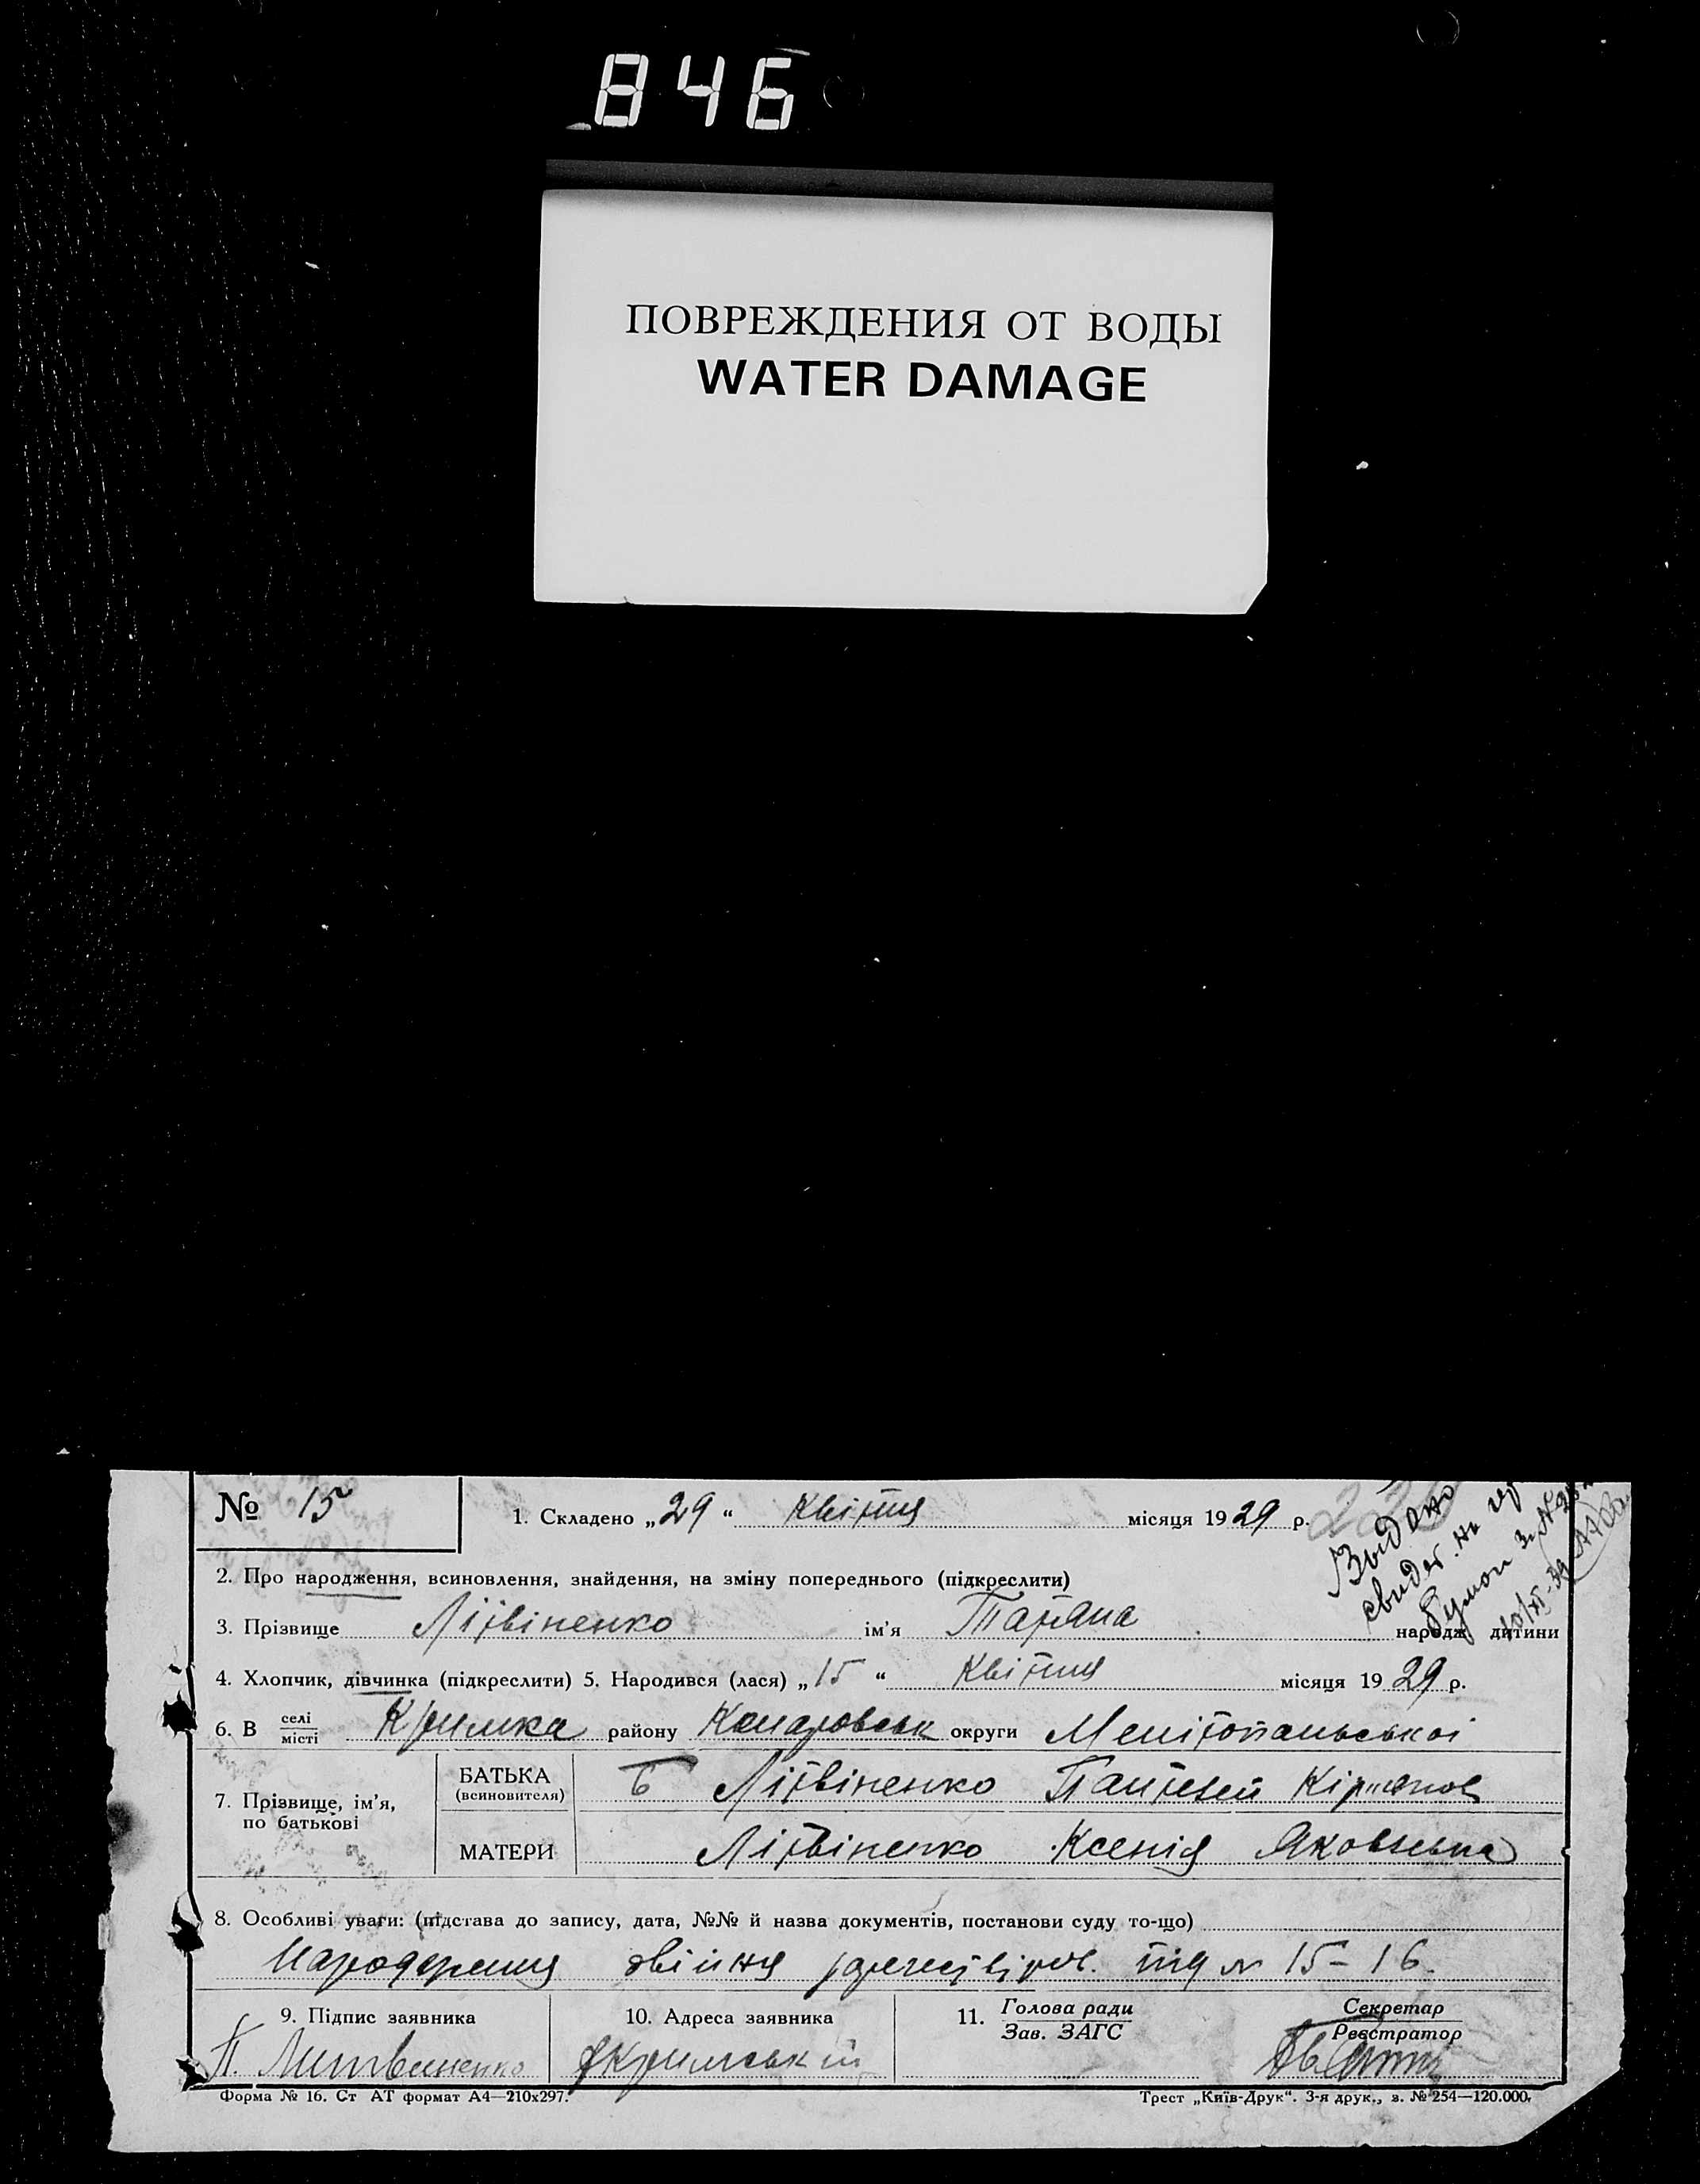 846
ПОВРЕЖДЕНИЯ ОТ ВОДЫ
WATER DAMAGE
№ 15
1. Складено „29“ квітня місяця 1929 р.
Выдано
свидет. на
10/XI-39
2. Про народження, всиновлення, знайдення, на зміну попереднього (підкреслити)
3. Прізвище Літвіненко ім'я Татяна народж. дитини
4. Хлопчик, дівчинка (підкреслити) 5. Народився (лася) „15“ квітня місяця 1929 р.
6. В селі місті Кримка району округи Мелітопальської
7. Прізвище, ім'я, по батькові
БАТЬКА (всиновителя) Б Літвіненко Пантелей
МАТЕРИ Літвіненко Ксенія Яковльвна
8. Особливі уваги: (підстава до запису, дата, №№ й назва документів, постанови суду то-що)
двійня під № 15-16
9. Підпис заявника
10. Адреса заявника
11. Голова ради Зав. ЗАГС
Секретар Реєстратор
П. Литвиненко
Форма № 16. Ст АТ формат А4—210х297.
Трест „Київ-Друк“. 3-я друк., з. № 254—120.000.